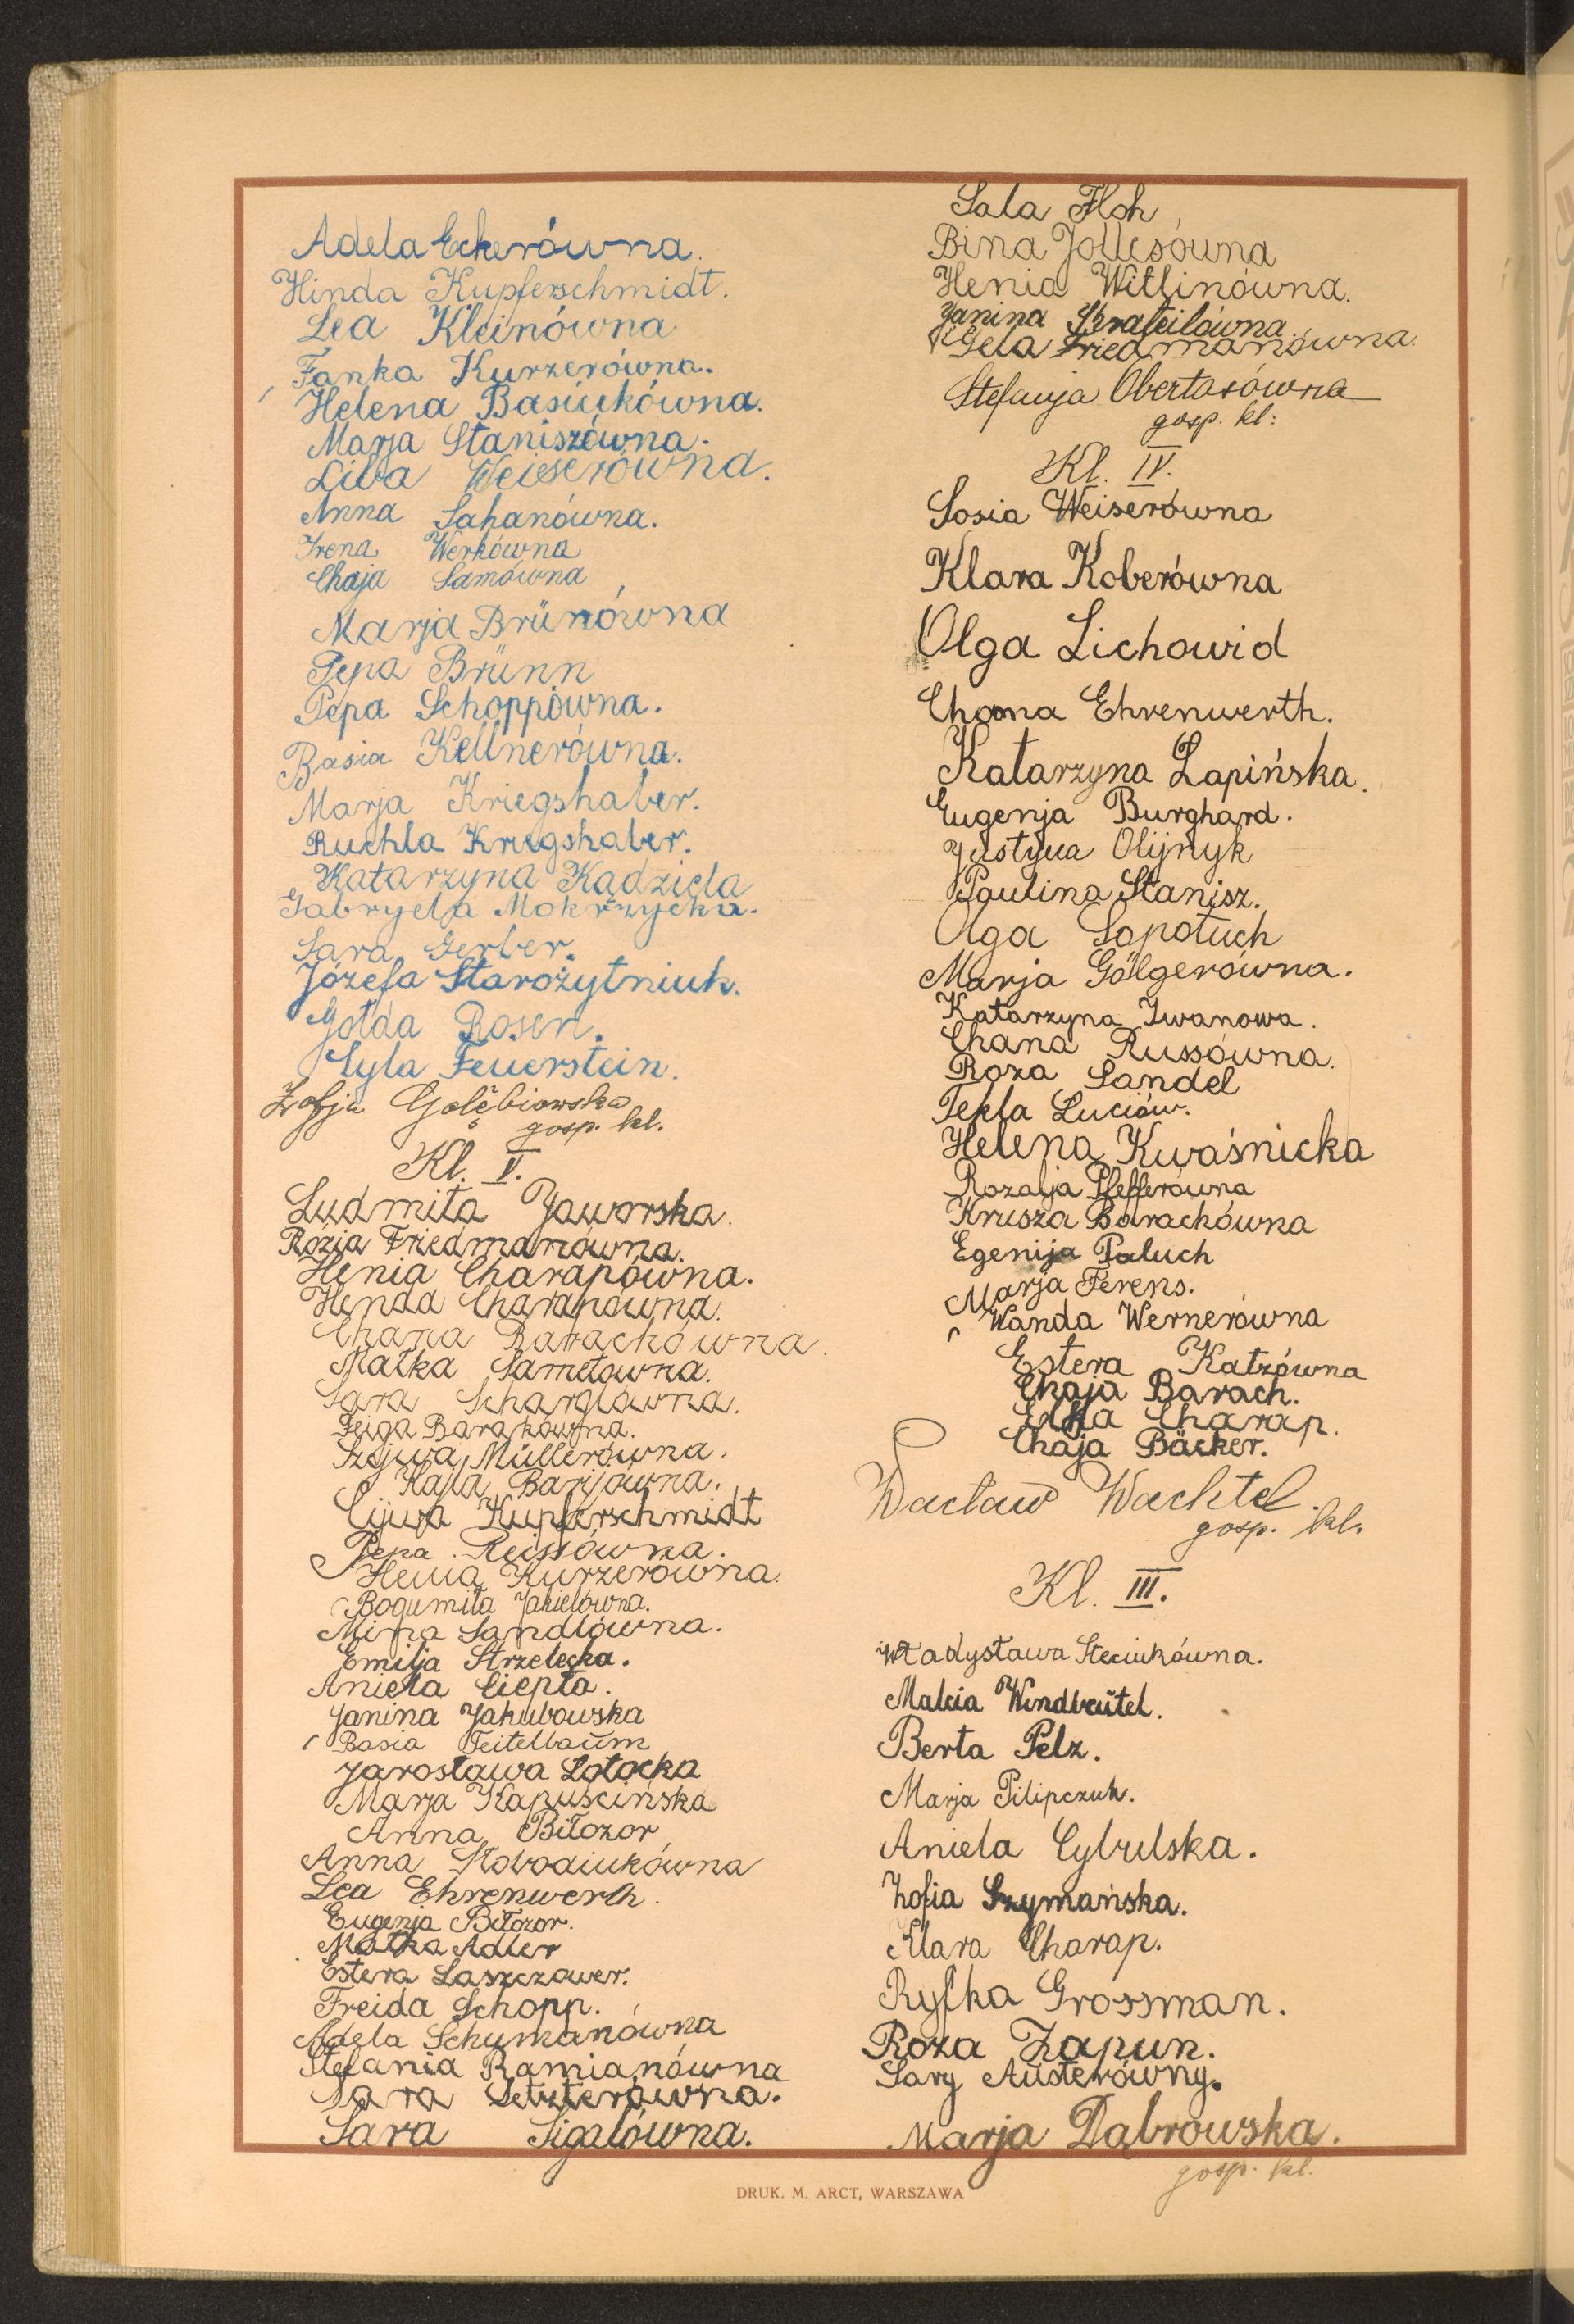 Adela Eckerówna.
Hinda Kupferschmidt.
Lea Kleinówna
Fanka Kurzerówna.
Helena Basiukówna.
Marja Staniszówna.
Liba Weiserówna.
Anna Sahanówna.
Irena Werkówna
Chaja Samówna
Marja Brünówna
Pepa Brünn
Pepa Schoppówna.
Basia Kellnerówna.
Marja Kriegshaber.
Ruchla Kriegshaber.
Katarzyna Kądziela
Gabryela Mokrzycka.
Sara Gerber.
Józefa Starożytniuk.
Gołda Rosen.
Cyla Feuerstein.
Zofja Gołębiowska
gosp. kl.
Kl. V.
Ludmiła Jaworska.
Rózia Friedmanówna.
Henia Charapówna.
Henda Charapówna.
Chana Barachówna.
Małka Sametówna.
Sara Scharglówna.
Feiga Barakówna.
Müllerówna.
Kupferschmidt
Pepa Reissówna.
Henia Kurzerówna.
Bogumiła Jakielówna.
Mina Sandlówna.
Emilja Strzelecka.
Aniela Ciepła.
Janina Jakubowska
Basia Teitelbaum
Jarosława Łotocka
Marja Kapuścińska
Anna Biłozor
Anna Słobodiukówna
Lea Ehrenwerth.
Eugenja Biłozor.
Małka Adler
Estera Laszczower.
Freida Schopp.
Adela Schumanówna
Stefania Ramianówna
Sara Setzterówna.
Sara Sigalówna.
Sala Floh
Bina Jollesówna
Henia Witlinówna.
Janina
Gela Friedmanówna.
Stefanja Obertasówna
gosp. kl:
Kl. IV.
Sosia Weiserówna
Klara Koberówna
Olga Lichowid
Chana Ehrenwerth.
Katarzyna Łapińska.
Eugenja Burghard.
Justyna Olijnyk
Paulina Stanisz.
Olga Sopotuch
Marja Gölgerówna.
Katarzyna Iwanowa.
Chana Russówna.
Roza Sandel
Tekla Luciów.
Helena Kwaśnicka
Rozalja Pfefferówna
Krusza Barachówna
Egenija Paluch
Marja Ferens.
Wanda Wernerówna
Estera Katzówna
Chaja Barach.
Edka Charap.
Chaja Bäcker.
Wacław Wachtel.
gosp. kl.
Kl. III.
Władysława Steciukówna.
Malcia Windbeütel.
Berta Pelz.
Marja Pilipczuk.
Aniela Cybulska.
Zofia Szymańska.
Klara Charap.
Ryfka Grossman.
Roza Zapun.
Sary Austerówny.
Marja Dąbrowska.
gosp. kl.
DRUK. M. ARCT, WARSZAWA